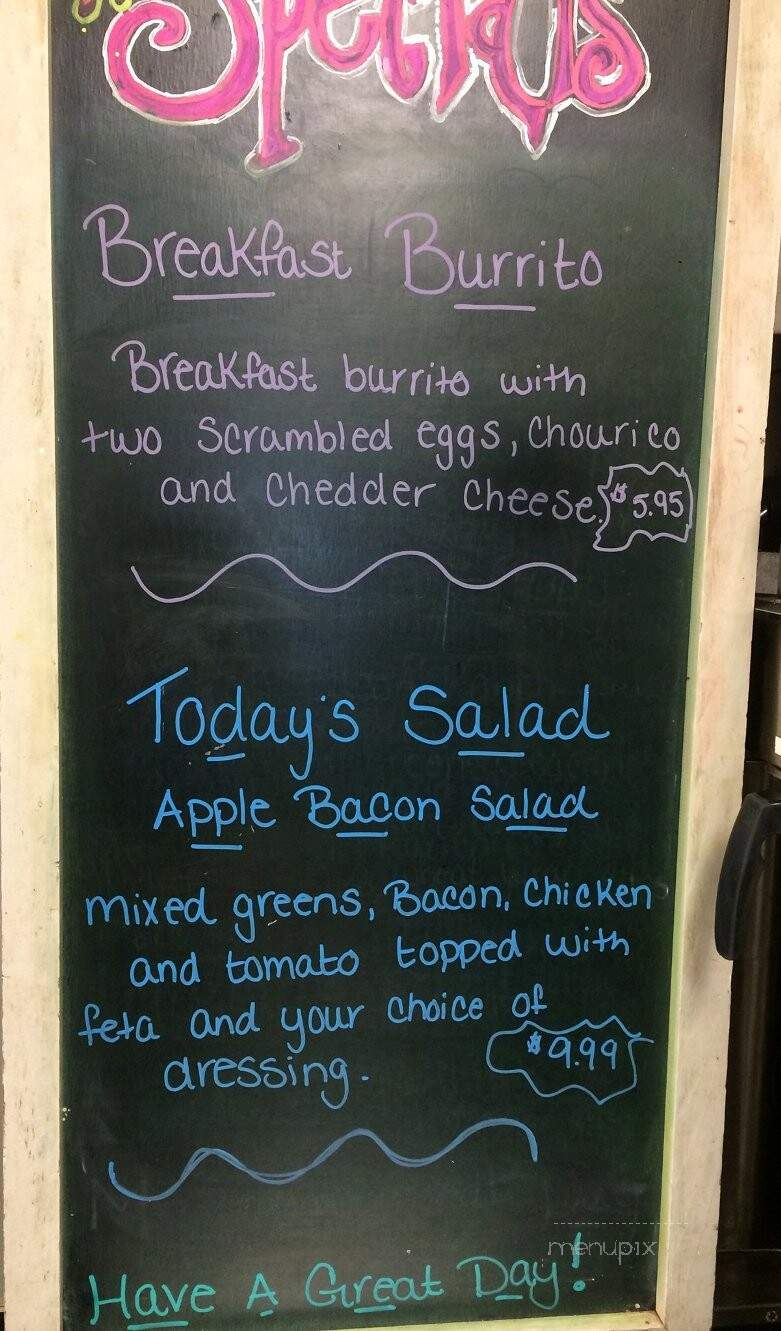 Specials
Breakfast Burrito
Breakfast burrito with
two scrambled eggs, Chourico
and Chedder Cheese. $5.95
Today's Salad
Apple Bacon Salad
mixed greens, Bacon, Chicken
and tomato topped with
feta and your choice of
dressing. $9.99
menupix
Have A Great Day!